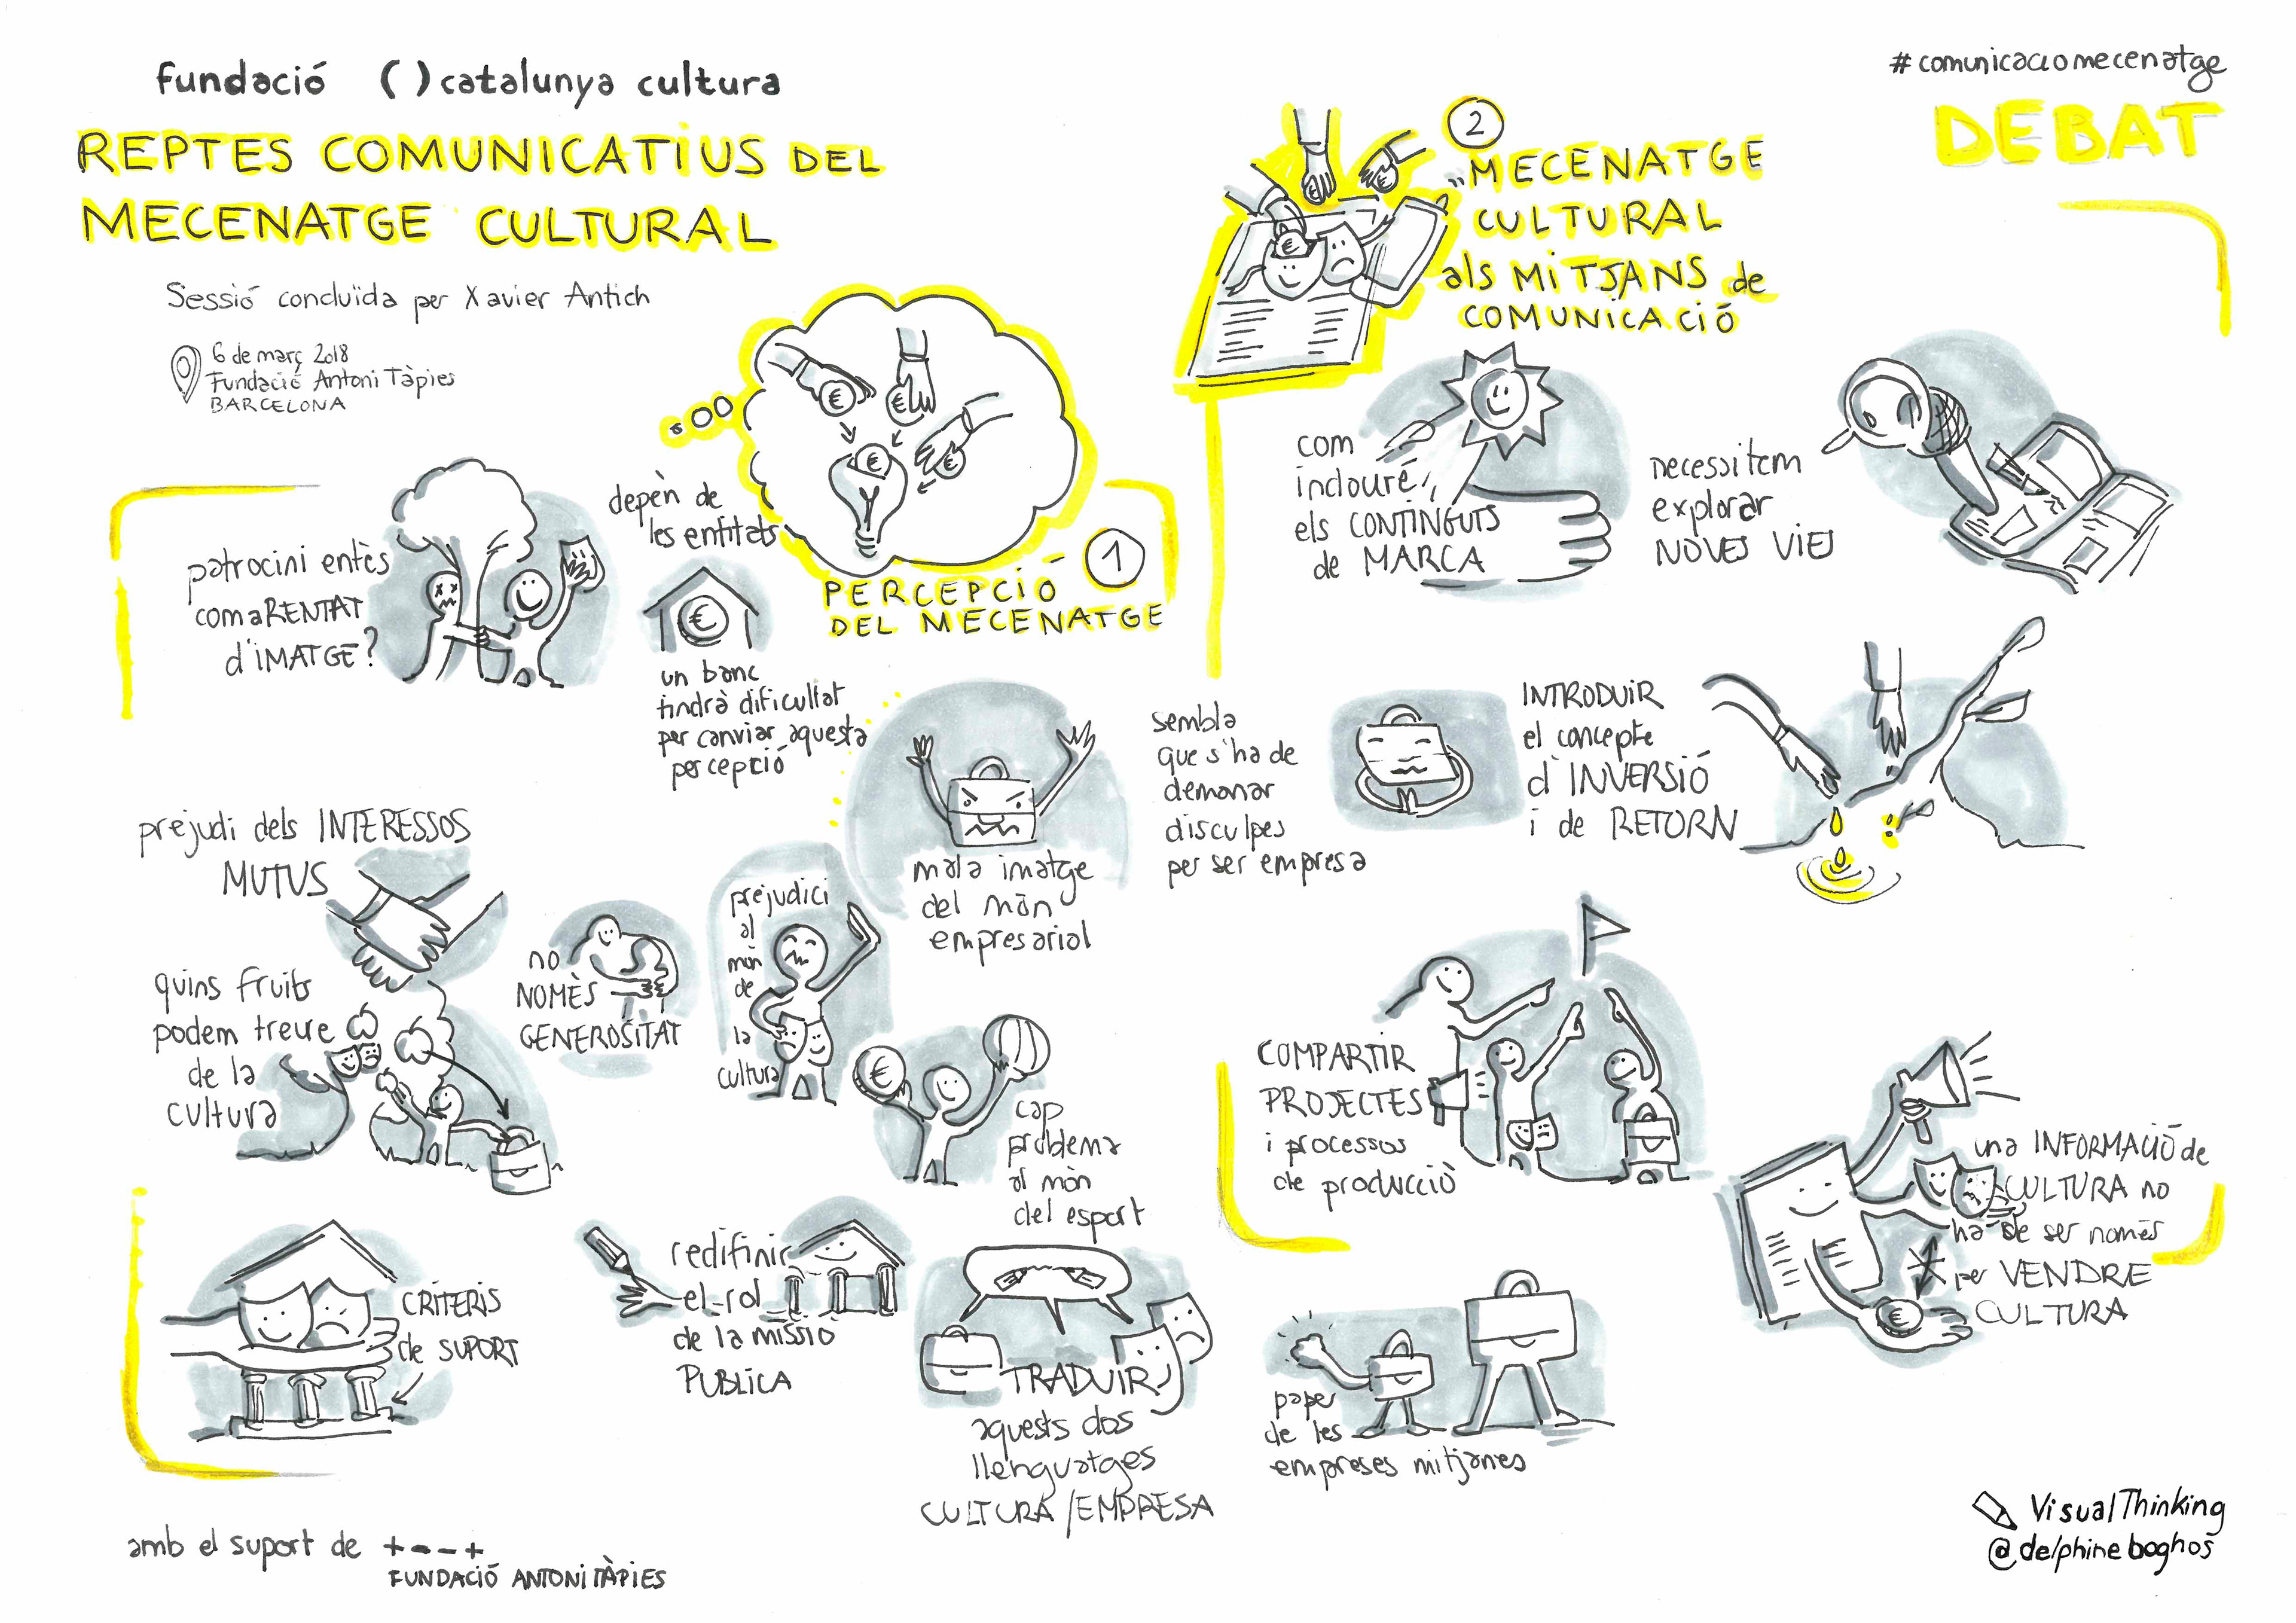 fundació ( ) catalunya cultura
REPTES COMUNICATIUS DEL
MECENATGE CULTURAL
Sessió concluïda per Xavier Antich
6 de març 2018
Fundació Antoni Tàpies
BARCELONA
#comunicaciomecenatge
DEBAT
1
PERCEPCIÓ
DEL MECENATGE
patrocini entès
com a RENTAT
d'IMATGE?
depèn de
les entitats
€
un banc
tindrà dificultat
per canviar aquesta
percepció
prejudi dels INTERESSOS
MUTUS
quins fruits
podem treure
de la
cultura
no
NOMÈS
GENEROSITAT
prejudici
al
món
de
la
cultura
mala imatge
del món
empresarial
€
cap
problema
al món
del esport
CRITERIS
de SUPORT
redifinir
el rol
de la missió
PUBLICA
TRADUIR
aquests dos
llenguatges
CULTURA/EMPRESA
2
"MECENATGE
CULTURAL
als MITJANS de
COMUNICACIÓ
com
incloure,
els CONTINGUTS
de MARCA
necessitem
explorar
NOVES VIES
sembla
que s'ha de
demanar
disculpes
per ser empresa
INTRODUIR
el concepte
d'INVERSIÓ
i de RETORN
COMPARTIR
PROJECTES
i processos
de producció
una INFORMACIÓ de
CULTURA no
ha de ser només
per VENDRE
CULTURA
€
paper
de les
empreses mitjanes
amb el suport de +---+
FUNDACIÓ ANTONI TÀPIES
VisualThinking
@delphineboghos